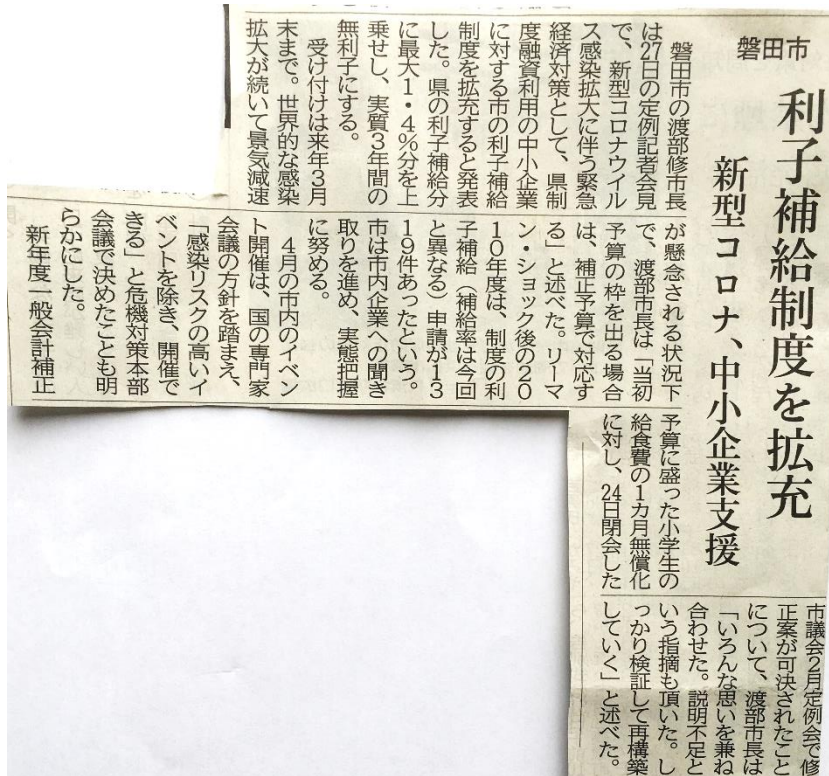 磐田市
利子補給制度を拡充
新型コロナ、中小企業支援
磐田市の渡部修市長
は27日の定例記者会見
で、新型コロナウイル
ス感染拡大に伴う緊急
経済対策として、県制
度融資利用の中小企業
に対する市の利子補給
制度を拡充すると発表
した。県の利子補給分
に最大1・4%分を上
乗せし、実質3年間の
無利子にする。
受け付けは来年3月
末まで。世界的な感染
拡大が続いて景気減速
が懸念される状況下
で、渡部市長は「当初
予算の枠を出る場合
は、補正予算で対応す
る」と述べた。リーマ
ン・ショック後の20
10年度は、制度の利
子補給(補給率は今回
と異なる)申請が13
19件あったという。
市は市内企業への聞き
取りを進め、実態把握
に努める。
4月の市内のイベン
ト開催は、国の専門家
会議の方針を踏まえ、
「感染リスクの高いイ
ベントを除き、開催で
きる」と危機対策本部
会議で決めたことも明
らかにした。
新年度一般会計補正
予算に盛った小学生の
給食費の1カ月無償化
に対し、24日閉会した
市議会2月定例会で修
正案が可決されたこと
について、渡部市長は
「いろんな思いを兼ね
合わせた。説明不足と
いう指摘も頂いた。し
っかり検証して再構築
していく」と述べた。